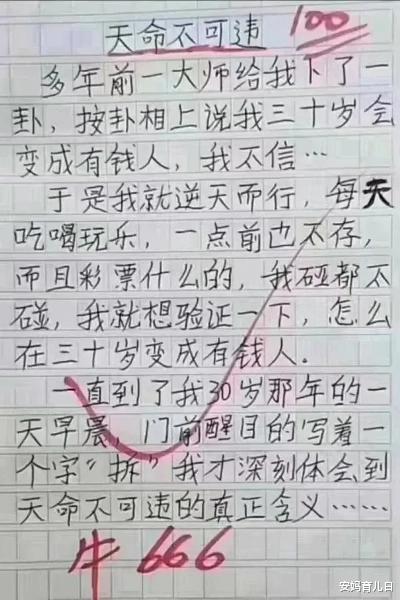 天命不可违
100
多年前一大师给我下了一
卦，按卦相上说我三十岁会
变成有钱人，我不信…
于是我就逆天而行，每天
吃喝玩乐，一点前也不存，
而且彩票什么的，我碰都不
碰，我就想验证一下，怎么
在三十岁变成有钱人．
一直到了我30岁那年的一
天早晨，门前醒目的写着一
个字“拆”我才深刻体会到
天命不可违的真正含义……
牛 666
安妈育儿日